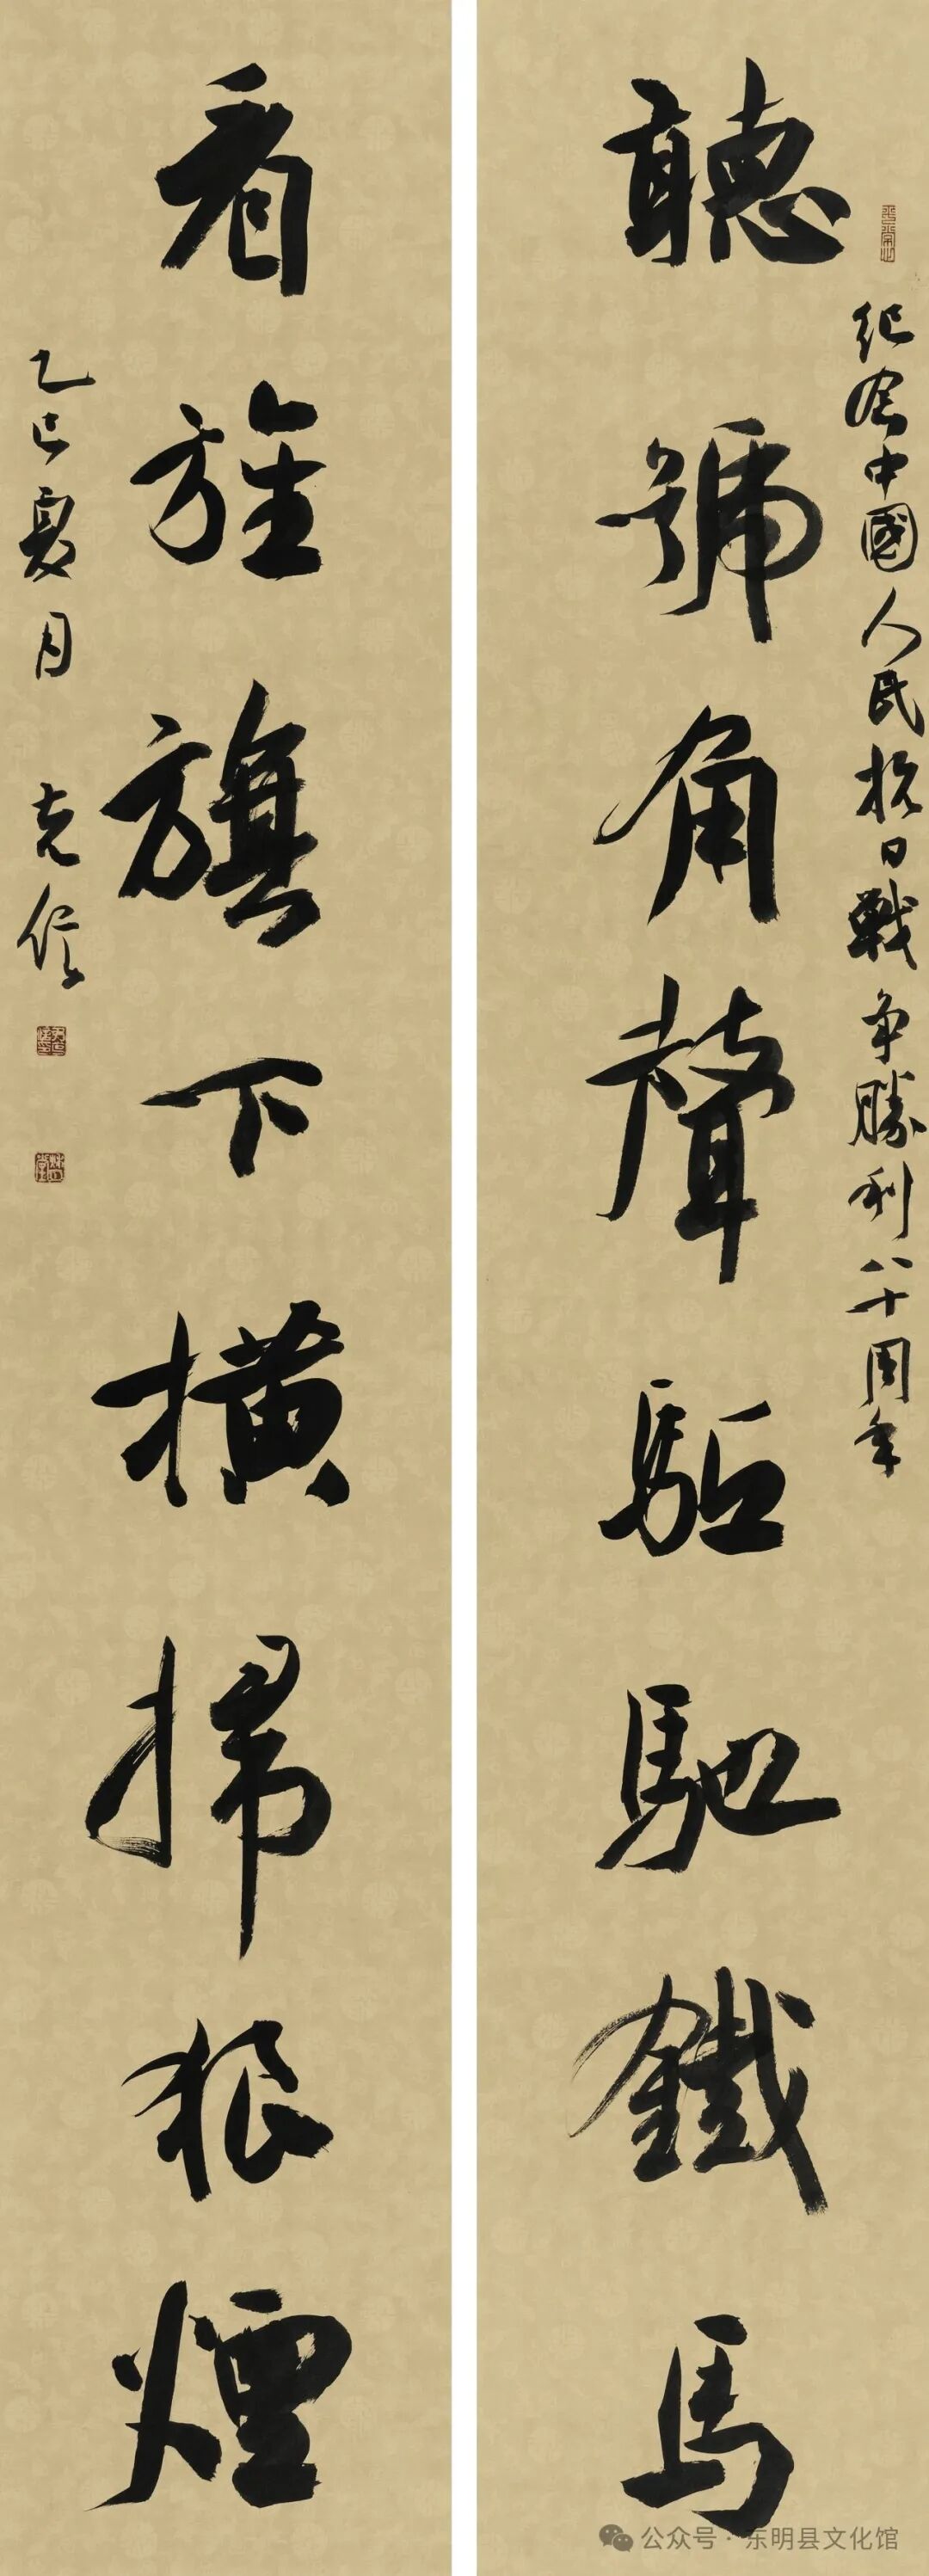 紀念中國人民抗日戰争勝利八十周年
聽號角聲駈馳鐵馬
看旌旗下橫掃狼煙
乙巳夏月 克信
平常心
公众号 · 东明县文化馆